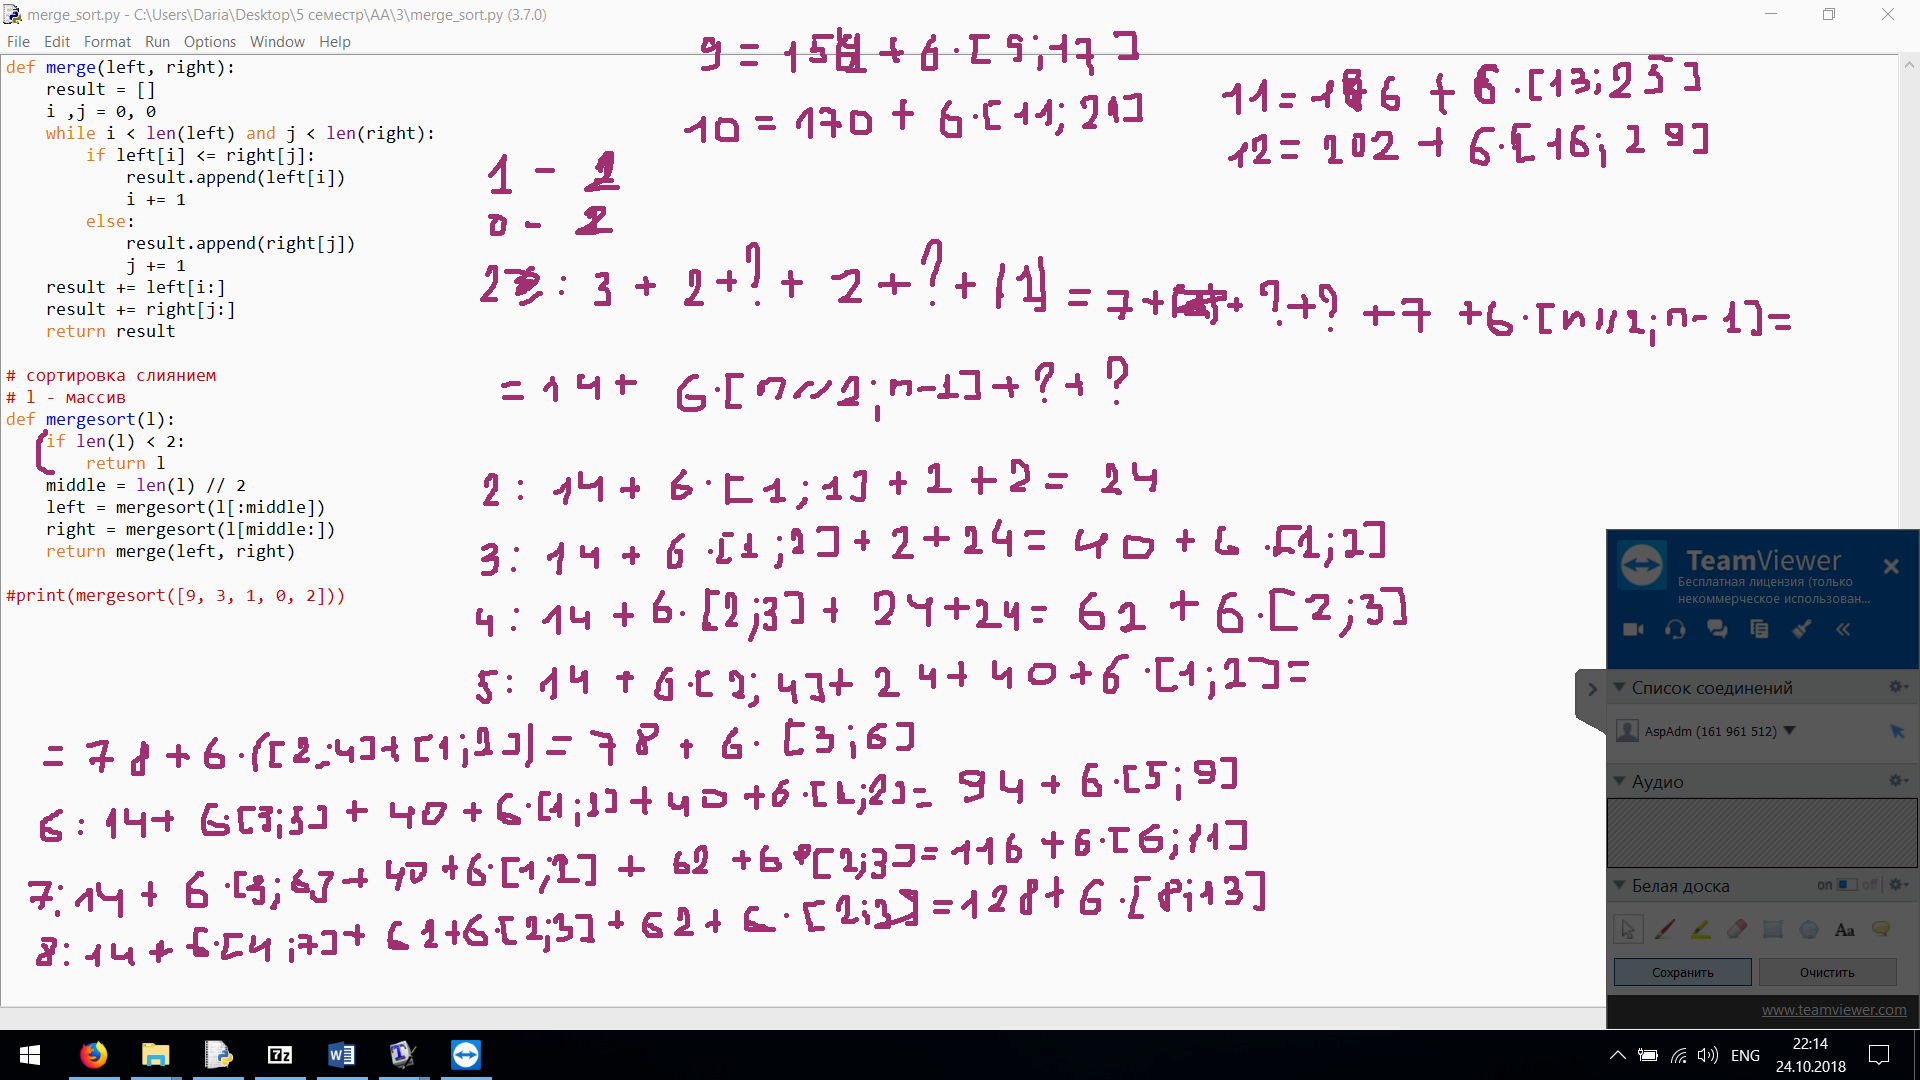 merge_sort.py - C:\Users\Daria\Desktop\5 семестр\AA\3\merge_sort.py (3.7.0)
File Edit Format Run Options Window Help
def merge(left, right):
    result = []
    i ,j = 0, 0
    while i < len(left) and j < len(right):
        if left[i] <= right[j]:
            result.append(left[i])
            i += 1
        else:
            result.append(right[j])
            j += 1
    result += left[i:]
    result += right[j:]
    return result
# сортировка слиянием
# l - массив
def mergesort(l):
    if len(l) < 2:
        return l
    middle = len(l) // 2
    left = mergesort(l[:middle])
    right = mergesort(l[middle:])
    return merge(left, right)
#print(mergesort([9, 3, 1, 0, 2]))
9 = + 6·[9;17]
10 = 170 + 6·[11;21]
11 = + 6·[13;25]
12 = 202 + 6·[16;29]
1 - 2
0 - 2
2 : 3 + 2 + ? + 2 + ? + [1] = 7 + + ? + ? + 7 + 6·[n//2;n-1] =
= 14 + 6·[n//2;n-1] + ? + ?
2: 14 + 6·[1;1] + 2 + 2 = 24
3: 14 + 6·[1;2] + 2 + 24 = 40 + 6·[1;2]
4: 14 + 6·[2;3] + 24+24 = 62 + 6·[2;3]
5: 14 + 6·[2;4] + 24 + 40 + 6·[1;2] =
= 78 + 6·([2;4]+[1;2]) = 78 + 6·[3;6]
6: 14 + 6·[3;5] + 40 + 6·[1;2] + 40 + 6·[1;2] = 94 + 6·[5;9]
7: 14 + 6·[3;6] + 40 + 6·[1;2] + 62 + 6·[2;3] = 116 + 6·[6;11]
8: 14 + 6·[4;7] + 62 + 6·[2;3] + 62 + 6·[2;3] = 128 + 6·[8;13]
TeamViewer
Бесплатная лицензия (только
некоммерческое использован...
Список соединений
AspAdm (161 961 512)
Аудио
Белая доска
on off
Aa
Сохранить Очистить
www.teamviewer.com
7z
ENG
22:14
24.10.2018